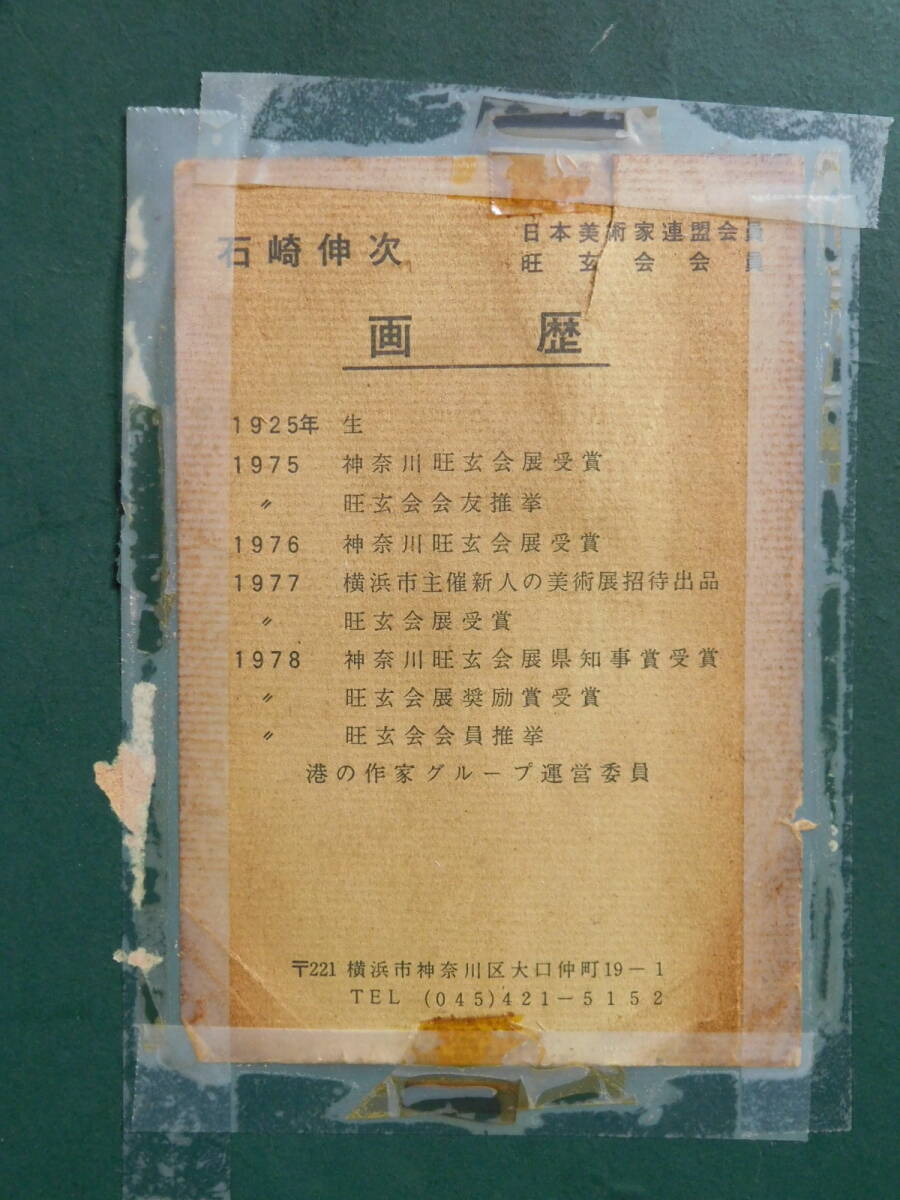 石崎伸次
日本美術家連盟会員
旺玄会会員
画歴
1925年 生
1975 神奈川旺玄会展受賞
〃 旺玄会会友推挙
1976 神奈川旺玄会展受賞
1977 横浜市主催新人の美術展招待出品
〃 旺玄会展受賞
1978 神奈川旺玄会展県知事賞受賞
〃 旺玄会展奨励賞受賞
〃 旺玄会会員推挙
港の作家グループ運営委員
〒221 横浜市神奈川区大口仲町19－1
TEL (045)421－5152